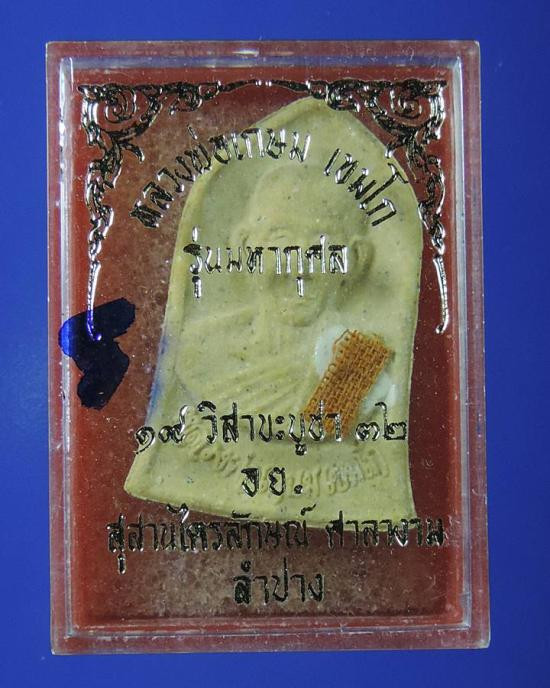 หลวงพ่อเกษม เขมโก
รุ่นมหากุศล
๑๙ วิสาขะบูชา ๓๒
จย.
สุสานไตรลักษณ์ ศาลางาม
ลำปาง